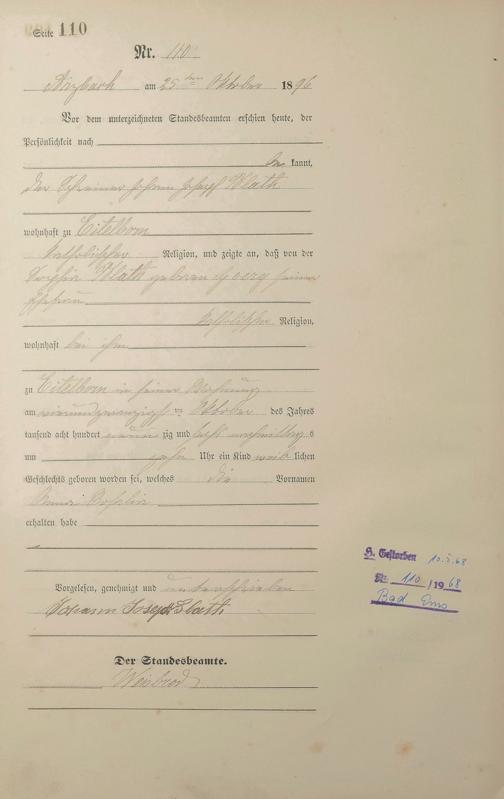 Seite 110
Nr. 110
Arzbach am 25 ten Oktober 1896
Vor dem unterzeichneten Standesbeamten erschien heute, der
Persönlichkeit nach
kannt,
der Schreiner Johann Josef Blath
wohnhaft zu Eitelborn
katholischer Religion, und zeigte an, daß von der
Blath geboren seiner
Ehefrau
katholischer Religion,
wohnhaft bei ihm
zu Eitelborn in seiner Wohnung
am vierundzwanzigsten Oktober des Jahres
tausend acht hundert neunzig und sechs nachmittags
um zehn Uhr ein Kind weiblichen
Geschlechts geboren worden sei, welches die Vornamen
Anna
erhalten habe
Vorgelesen, genehmigt und unterschrieben
Johann Josef Blath
Der Standesbeamte.
Weinbrod
H. Gestorben 10.5.68
Nr. 110/1968
Bad Ems